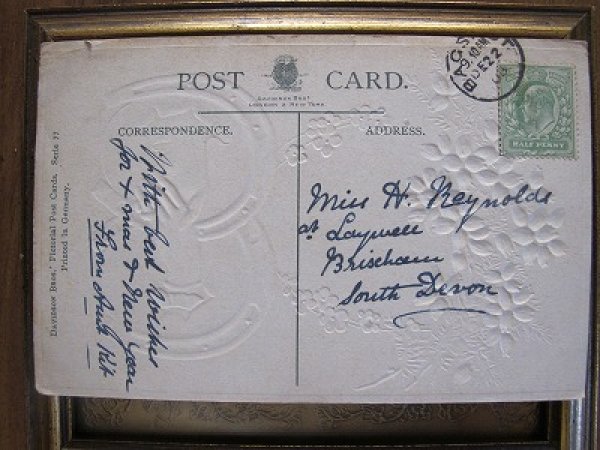 POST CARD.
DAVIDSON BROS.
LONDON & NEW YORK
BAGS
9.10 AM
DE 22
HALF PENNY
CORRESPONDENCE.
ADDRESS.
With best Wishes
for Xmas & New Year
From Aunt Kit
Miss H. Reynolds
at Laywell
Brixham
South Devon
DAVIDSON BROS.' Pictorial Post Cards. Serie 77
Printed in Germany.